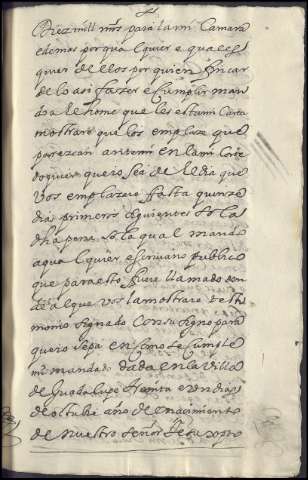 Diez mill mrs para la mi camara
e demas por qual quier e quales
quier de ellos por quien fincar
de lo asi fazer e cumplir man
do a el home que les esta mi carta
mostrare que los emplaze que
parezcan ante mi en la mi corte
do quier que yo sea de el dia que
vos emplazere fasta quinze
dias primeros siguientes so la
dha pena so la qual mando
a qual quier escrivano publico
que para esto fuere llamado den
de a el que vos la mostrare testi
monio signado con su signo para
que yo sepa en como se cumple
mi mandado dada en la villa
de Guadalupe treinta e un dias
de octubre año de nacimiento
de nuestro señor